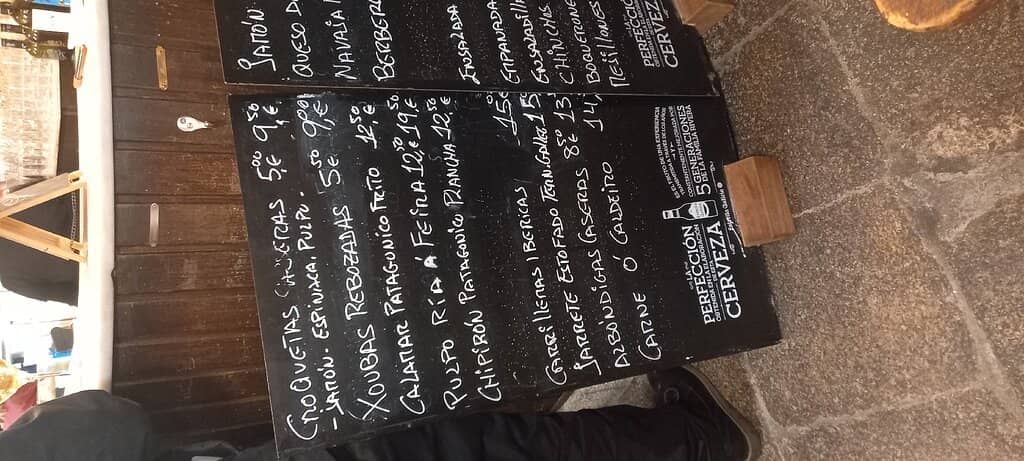 CROQUETAS CASERAS 5,00 € 9,50 €
- XAMÓN. ESPINACA. PULPO.
XOUBAS REBOZADAS 5,50 € 9,00 €
CALAMAR PATAGONICO FRITO 12,50 €
PULPO RÍA Á FEIRA 12,70 19,50 €
CHIPIRÓN PATAGONICO PLANCHA 12,50 €
CARRILLERAS IBERICAS 15,00 €
JARRETE ESTOFADO 15
ALBÓNDIGAS CASERAS 8,50 13
CARNE Ó CALDEIRO 14
PERFECCIÓN
CERVEZA
5 GENERACIONES
DE LA FAMILIA RIVERA
XAMÓN
QUESO D
NAVAJA
BERBERE
ENSALADA
EMPANADA
ENSALADILL
CHINCHOS
BOQUERONE
MEJILLONES
PERFECCIÓN
CERVEZA